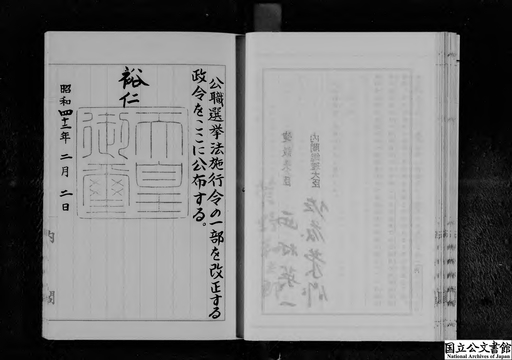 公職選挙法施行令の一部を改正する
政令をここに公布する。
裕仁
天皇御璽
昭和四十三年二月二日
内閣
内閣総理大臣
佐藤榮作
国立公文書館
National Archives of Japan